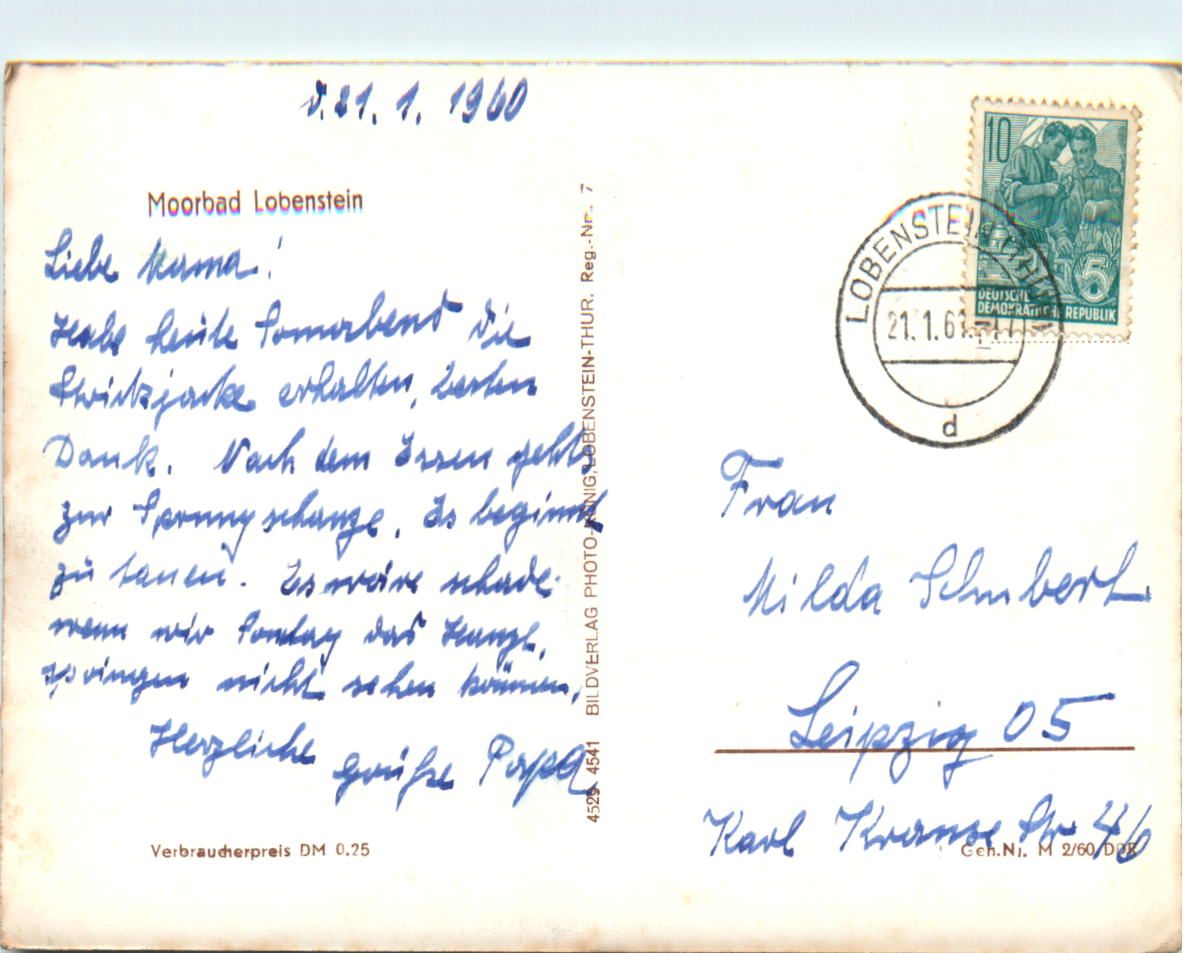 d. 21. 1. 1960
Moorbad Lobenstein
Liebe Mama!
Habe heute Sonnabend die
Strickjacke erhalten, besten
Dank. Nach dem Essen gehts
zur Sprungschanze. Es beginnt
zu tauen. Es wäre schade
wenn wir Sontag das
springen nicht sehen können,
Herzliche
Grüße Papa
Verbraucherpreis DM 0.25
4529 4541 BILDVERLAG PHOTO-KÖNIG, LOBENSTEIN-THUR. Reg.-Nr. 7
10
5
DEUTSCHE
DEMOKRATISCHE REPUBLIK
LOBENSTEIN (THÜR)
21.1.61
d
Frau
Milda Schubert
Leipzig 05
Karl Krause Str. 46
Geh.Nr. M 2/60 DDR